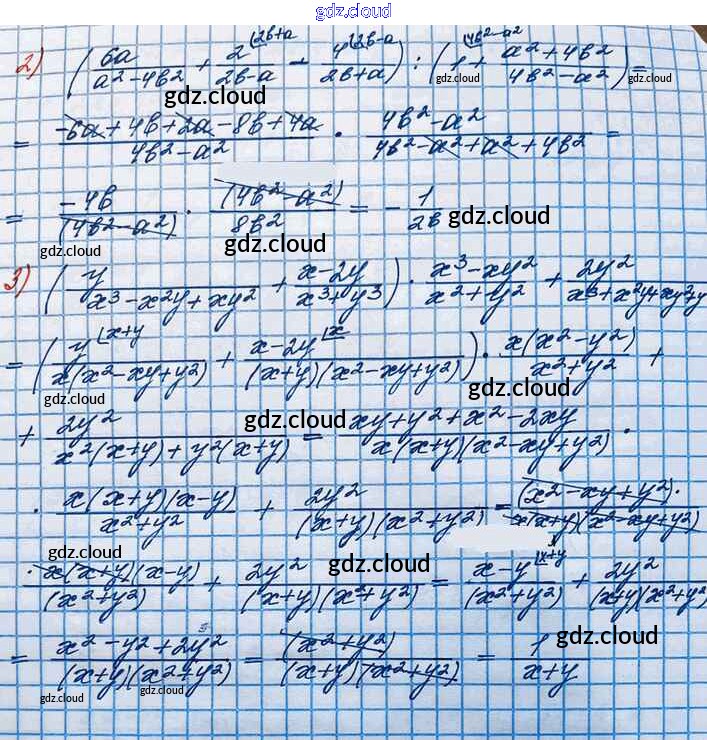 gdz.cloud
2) (6a/(a²-4b²) + 2/(2b-a) |2b+a - 4/(2b+a) |2b-a) : (1 + (a²+4b²)/(4b²-a²)) |4b²-a² =
gdz.cloud gdz.cloud gdz.cloud
= (-6a+4b+2a-8b+4a)/(4b²-a²) · (4b²-a²)/(4b²-a²+a²+4b²) =
gdz.cloud gdz.cloud
= -4b/(4b²-a²) · (4b²-a²)/8b² = - 1/2b
gdz.cloud gdz.cloud gdz.cloud
3) (y/(x³-x²y+xy²) + (x-2y)/(x³+y³)) · (x³-xy²)/(x²+y²) + 2y²/(x³+x²y+xy²+y
gdz.cloud gdz.cloud gdz.cloud
= (y |x+y/(x(x²-xy+y²)) + (x-2y) |x/((x+y)(x²-xy+y²))) · x(x²-y²)/(x²+y²) +
gdz.cloud gdz.cloud
+ 2y²/(x²(x+y)+y²(x+y)) = (xy+y²+x²-2xy)/(x(x+y)(x²-xy+y²)) ·
gdz.cloud gdz.cloud
· x(x+y)(x-y)/(x²+y²) + 2y²/((x+y)(x²+y²)) = (x²-xy+y²)·/(x(x+y)(x²-xy+y²))
gdz.cloud gdz.cloud
· x(x+y)(x-y)/(x²+y²) + 2y²/((x+y)(x²+y²)) = (x-y) |x+y/(x²+y²) + 2y²/((x+y)(x²+y²
gdz.cloud
= (x²-y²+2y²)/((x+y)(x²+y²)) = (x²+y²)/((x+y)(x²+y²)) = 1/(x+y)
gdz.cloud gdz.cloud gdz.cloud